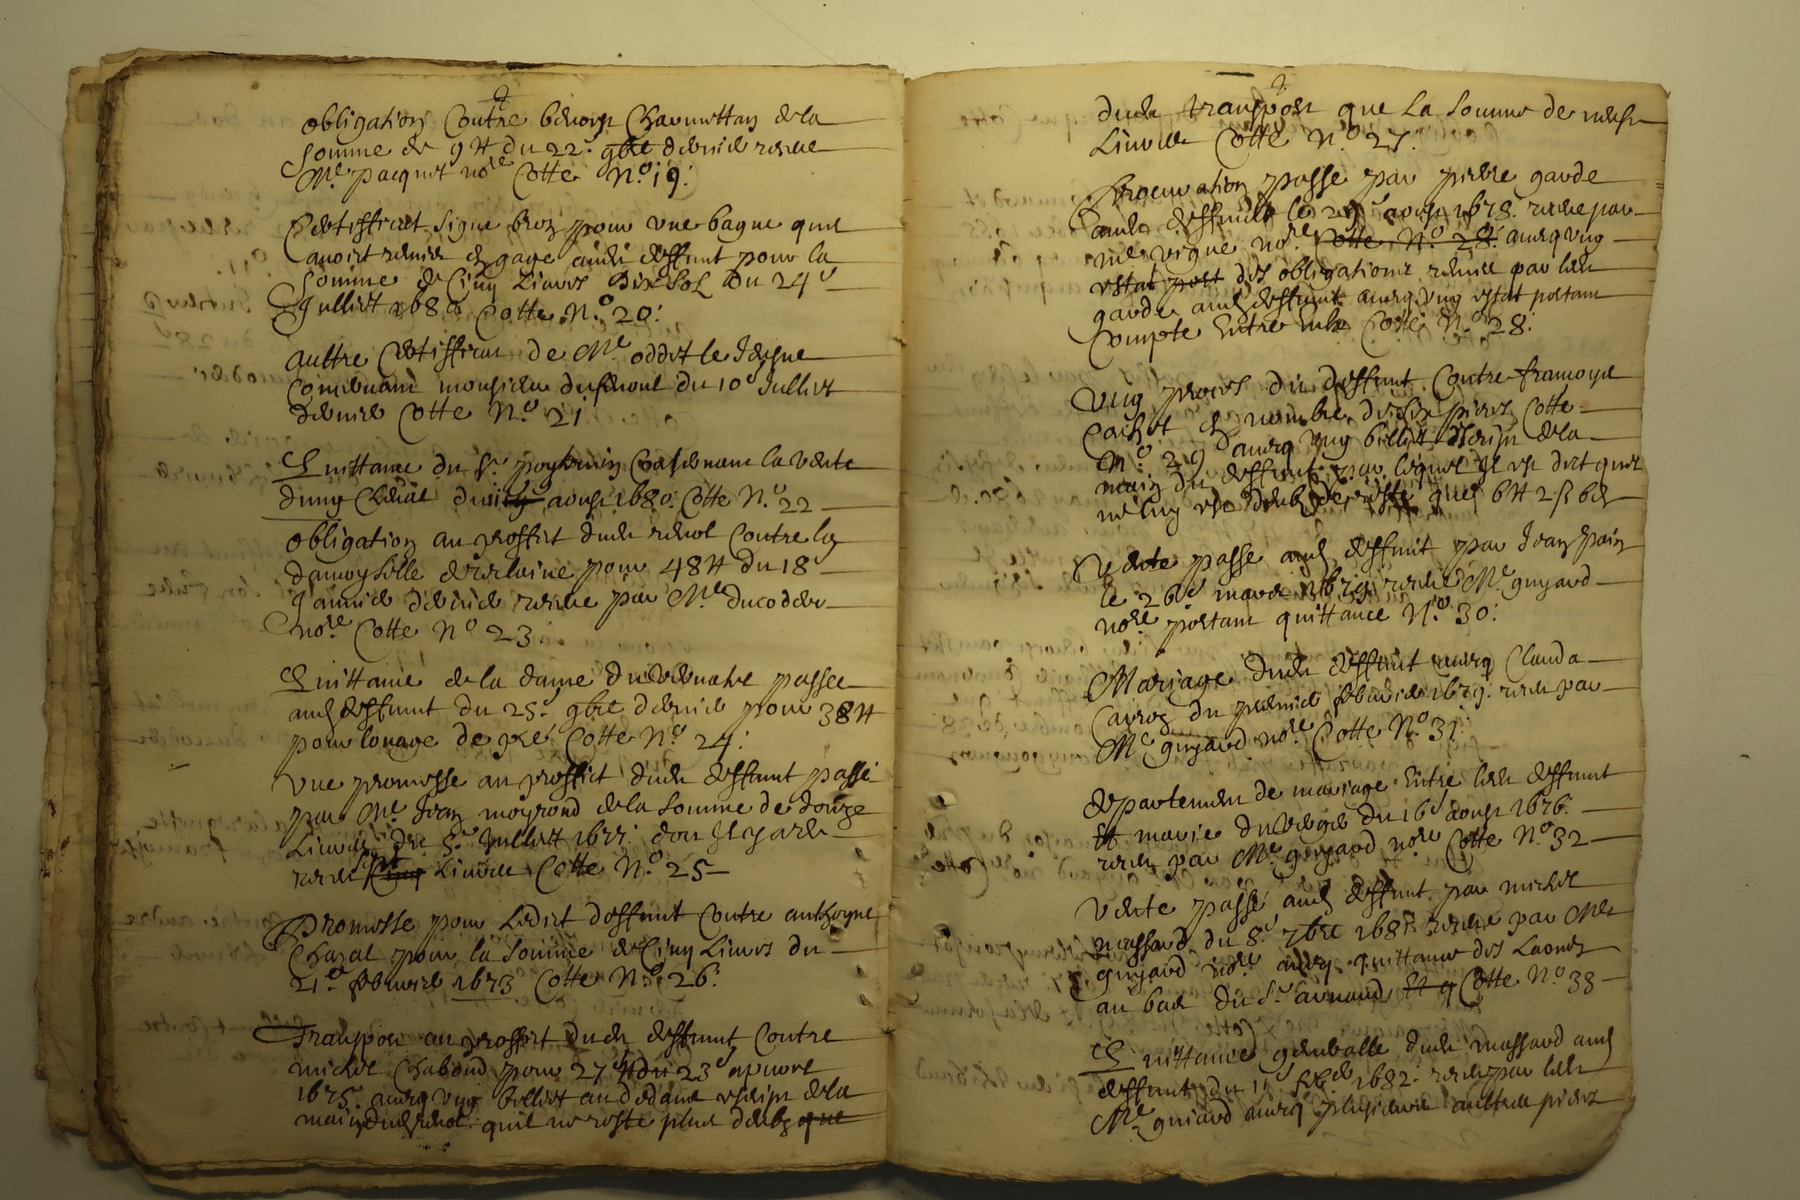 obligation Contre benoyst Chaumettan de la
somme de 9 # du 22e 9bre dernier receue
Me pacquet nore Cotte No 19.
Certifficat signe broz pour une bague quil
avoict remise en gage audit deffunt pour la
somme de Cinq Livres Dix sol Du 24e
Julliet 1680 Cotte No 20.
aultre Certifficat de Me oddet le Jeusne
Concernant monsieur du du 10e Julliet
dernier Cotte No 21
Quittance du Sr Contenant la vente
dung Cheval du aoust 1680. Cotte No 22
obligation au proffict dudit revol Contre la
damoyselle pour 48 # du 18e
Janvier dernier receue par Me ducodder
nore Cotte No 23.
Quittance de la dame passee
aud deffunt du 25e 9bre dernier pour 38 #
pour louage de Cotte No 24.
Une promesse au proffict dudit deffunt passé
par Me Jean moyroud de la somme de douze
Livres du 5e Julliet 1677. don Il y a
receu sept Livres Cotte No 25
Promesse pour Ledict deffunt Contre anthoyne
Chazal pour la somme de Cinq Livres du
21e febvrier 1673 Cotte No 26.
Transport au proffict dudit deffunt Contre
michel Chaboud pour 27 # du 23e apvril
1675. avecq ung billiet au dedans escript de la
main dud revol quil ne reste plus deub que
2
dudit transport que La somme de
Livres Cotte No 27.
Procuration passé par pierre garde
audit deffunct le 29e aoust 1678. receue par
me vigne nore Cotte No 28. avecq ung
estat port des obligations remise par ledit
garde aud deffunt avecq ung estat portant
Compte Entre Eulx Cotté No 28.
Ung proces du deffunt Contre francoyse
en nombre de Six pieces Cotte
No 29 avecq ung billiet Escript de la
main du deffunt par lequel Il est dict quil
ne luy est deub de reste que 6 # 2 s 6 d
Vente passé aud deffunt par Jean pain
le 26e mars 1679. receue Me guyard
nore portant quittance No 30.
Mariage dudit deffunt avecq Clauda
Cavoz du premier febvrier 1679. receu par
Me guyard nore Cotte No 31.
departement de mariage Entre ledit deffunt
Et marie du verger du 16e aoust 1676.
receu par Me guyard nore Cotte No 32
Vente passé aud deffunt par michel
massard du 8e 7bre 1681 receue par Me
guyard nore avecq quittance des Laods
au bas du Sr arnaud Et q Cotte No 33
Quittance generalle dudit massard aud
deffunt du 11e 1682. receue par ledit
Me guiard avecq plusieurs aultres pieces